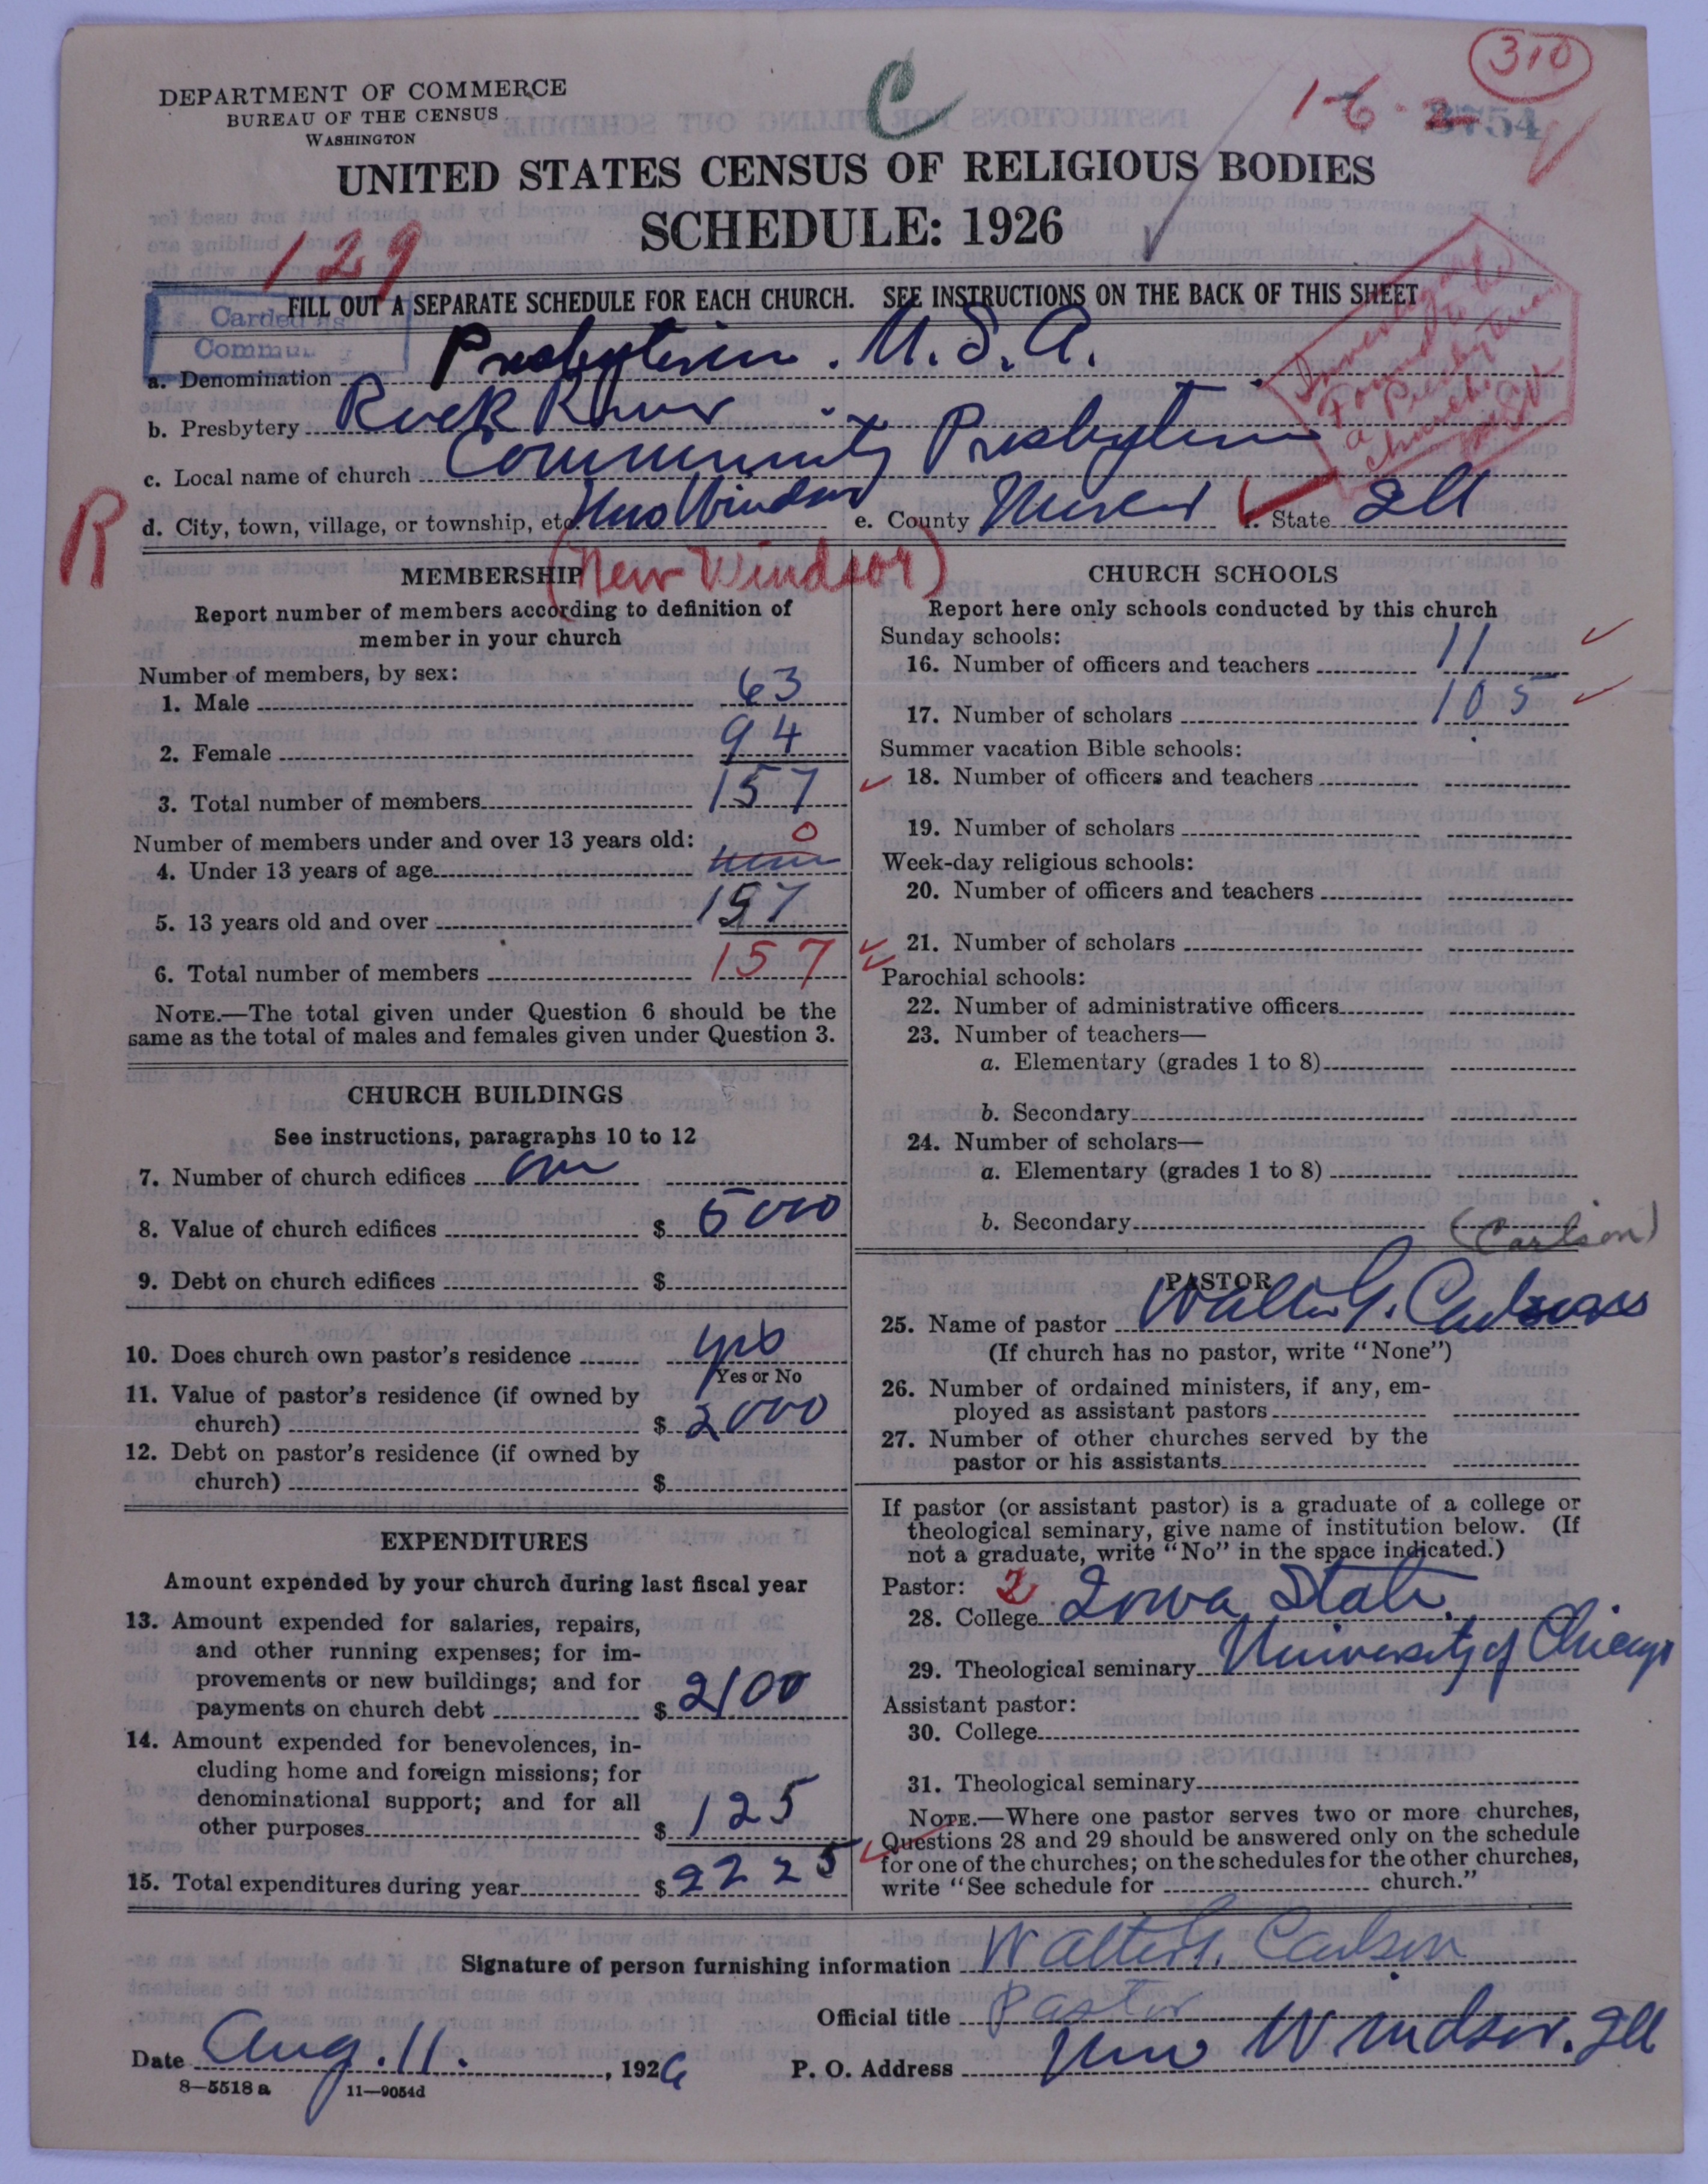 310
C
1-6-2
8754
DEPARTMENT OF COMMERCE
BUREAU OF THE CENSUS
WASHINGTON
UNITED STATES CENSUS OF RELIGIOUS BODIES
SCHEDULE: 1926
129
FILL OUT A SEPARATE SCHEDULE FOR EACH CHURCH. SEE INSTRUCTIONS ON THE BACK OF THIS SHEET
Carded as
Commu
Investigated
Found to be
a Presbyterian
church
a. Denomination Presbyterian. U.S.A.
b. Presbytery Rock River
c. Local name of church Community Presbyterian
R
d. City, town, village, or township, etc. New Windsor e. County Mercer f. State Ill
(New Windsor)
MEMBERSHIP
Report number of members according to definition of
member in your church
Number of members, by sex:
1. Male 63
2. Female 94
3. Total number of members 157
Number of members under and over 13 years old:
0
4. Under 13 years of age none
5. 13 years old and over 157
6. Total number of members 157
NOTE.—The total given under Question 6 should be the
same as the total of males and females given under Question 3.
CHURCH BUILDINGS
See instructions, paragraphs 10 to 12
7. Number of church edifices one
8. Value of church edifices $ 5000
9. Debt on church edifices $
10. Does church own pastor's residence yes
Yes or No
11. Value of pastor's residence (if owned by
church) $ 2000
12. Debt on pastor's residence (if owned by
church) $
EXPENDITURES
Amount expended by your church during last fiscal year
13. Amount expended for salaries, repairs,
and other running expenses; for im-
provements or new buildings; and for
payments on church debt $ 2100
14. Amount expended for benevolences, in-
cluding home and foreign missions; for
denominational support; and for all
other purposes $ 125
15. Total expenditures during year $ 2225
CHURCH SCHOOLS
Report here only schools conducted by this church
Sunday schools:
16. Number of officers and teachers 11
17. Number of scholars 105
Summer vacation Bible schools:
18. Number of officers and teachers
19. Number of scholars
Week-day religious schools:
20. Number of officers and teachers
21. Number of scholars
Parochial schools:
22. Number of administrative officers
23. Number of teachers—
a. Elementary (grades 1 to 8)
b. Secondary
24. Number of scholars—
a. Elementary (grades 1 to 8)
b. Secondary
(Carlson)
PASTOR
25. Name of pastor Walter G. Carlson
(If church has no pastor, write "None")
26. Number of ordained ministers, if any, em-
ployed as assistant pastors
27. Number of other churches served by the
pastor or his assistants
If pastor (or assistant pastor) is a graduate of a college or
theological seminary, give name of institution below. (If
not a graduate, write "No" in the space indicated.)
Pastor: 2
28. College Iowa State
29. Theological seminary University of Chicago
Assistant pastor:
30. College
31. Theological seminary
NOTE.—Where one pastor serves two or more churches,
Questions 28 and 29 should be answered only on the schedule
for one of the churches; on the schedules for the other churches,
write "See schedule for church."
Signature of person furnishing information Walter G. Carlson
Official title Pastor
Date Aug. 11. , 1926 P. O. Address New Windsor. Ill
8—5518 a 11—9054d